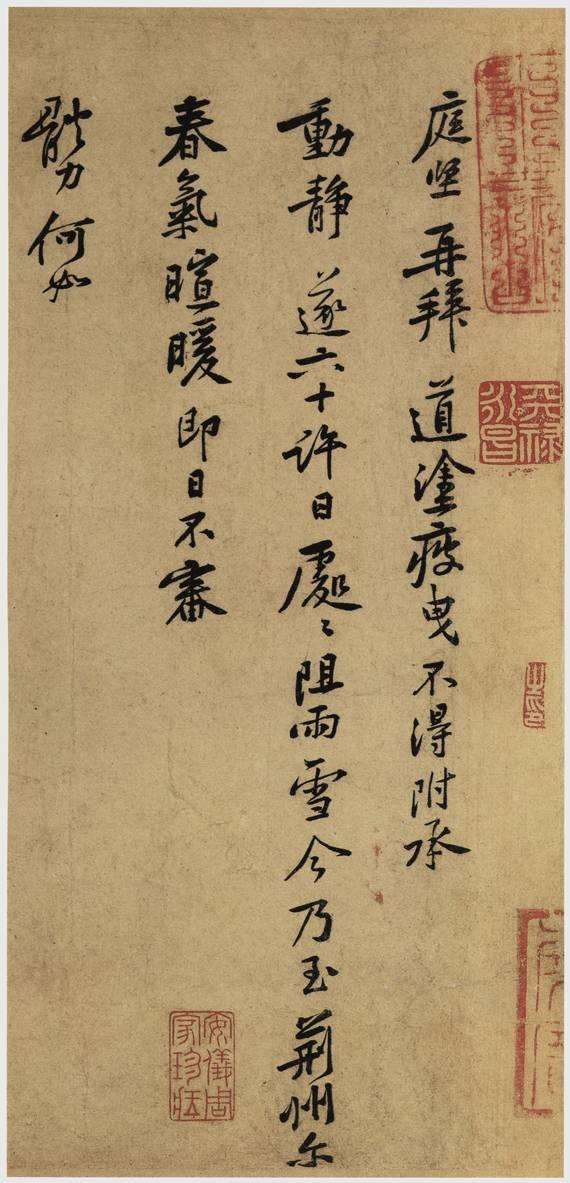 庭坚再拜道塗疲曳不得附承
動静遂六十許日處〻阻雨雪今乃至荆州尔
春氣暄暖即日不審
體力何如
天祿
永昌
安儀周
家珍藏